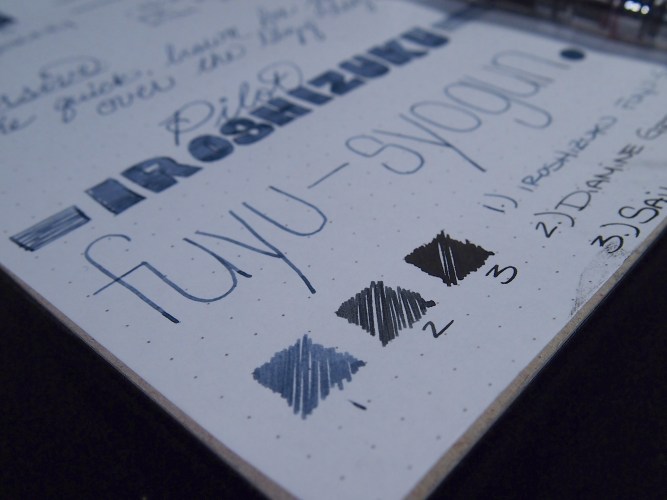 quick, brown fox
over the lazy
Pilot
IROSHIZUKU
fuyu-syogun
1.) IROSHIZUKU
2.) DIAMINE
3.)
1
2
3